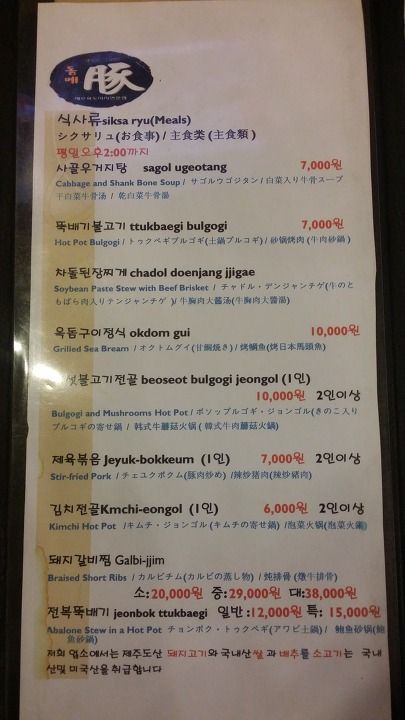 돔메
豚
식사류siksa ryu(Meals)
シクサリュ(お食事) / 主食类 (主食類 )
평일오후2:00까지
사골우거지탕 sagol ugeotang 7,000원
Cabbage and Shank Bone Soup / サゴルウゴジタン / 白菜入り牛骨スープ
干白菜牛骨汤 / 乾白菜牛骨湯
뚝배기불고기 ttukbaegi bulgogi 7,000원
Hot Pot Bulgogi / トゥクペギプルゴギ(土鍋プルコギ) / 砂锅烤肉 (牛肉砂鍋 )
차돌된장찌게 chadol doenjang jjigae
Soybean Paste Stew with Beef Brisket / チャドル・デンジャンチゲ(牛のと
もばら肉入りテンジャンチゲ )/ 牛胸肉大酱汤(牛胸肉大醬湯)
옥돔구이정식 okdom gui 10,000원
Grilled Sea Bream / オクトムグイ(甘鯛焼き) / 烤鲷鱼(烤日本馬頭魚)
섯불고기전골 beoseot bulgogi jeongol (1인)
10,000원 2인이상
Bulgogi and Mushrooms Hot Pot / ポソップルゴギ・ジョンゴル(きのこ入り
プルコギの寄せ鍋 / 韩式牛蘑菇火锅 ( 韓式牛肉蘑菇火鍋 )
제육볶음 Jeyuk-bokkeum (1인) 7,000원 2인이상
Stir-fried Pork / チェユクポクム(豚肉炒め) /辣炒猪肉(辣炒豬肉)
김치전골Kmchi-eongol (1인) 6,000원 2인이상
Kimchi Hot Pot /キムチ・ジョンゴル (キムチの寄せ鍋) /泡菜火锅(泡菜火鍋)
돼지갈비찜 Galbi-jjim
Braised Short Ribs / カルビチム(カルビの蒸し物) / 炖排骨 (燉牛排骨)
소:20,000원 중:29,000원 대:38,000원
전복뚝배기 jeonbok ttukbaegi 일반 :12,000원 특: 15,000원
Abalone Stew in a Hot Pot チョンボク・トゥクペギ(アワビ土鍋) / 鲍鱼砂锅(鮑
魚砂鍋)
저희 업소에서는 제주도산 돼지고기와 국내산쌀 과 배추를 소고기는 국내
산및 미국산을 취급합니다